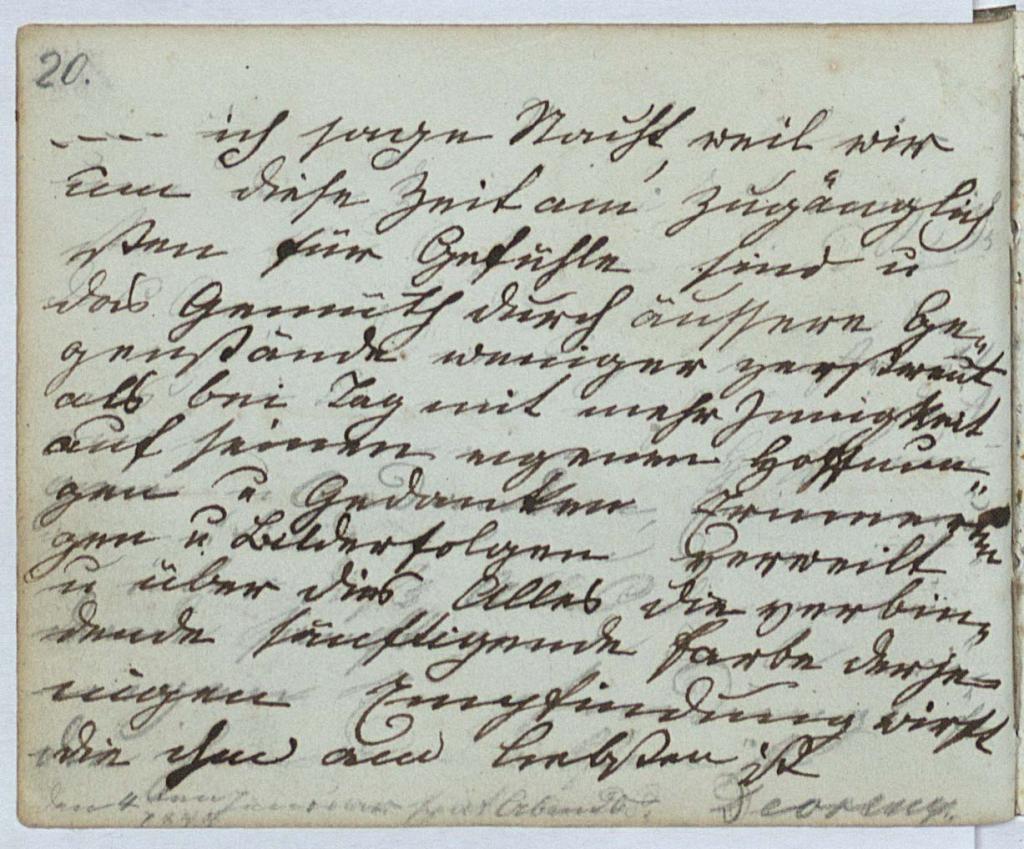 20.
---- ich sage Nacht, weil wir
um diese Zeit am zugänglich
sten für Gefühle sind u
das Gemüth durch äussere Ge„
genstände weniger zerstreut
als bei Tag mit mehr Innigkeit
auf seinen eigenen Hoffnun„
gen u Gedanken, Erinnerun
gen u Bilderfolgen verweilt
u über dies Alles die verbin„
dende sänftigende Farbe derje„
nigen Empfindung wirft
die ihm am liebsten ist
den 4ten Januar spät Abends.